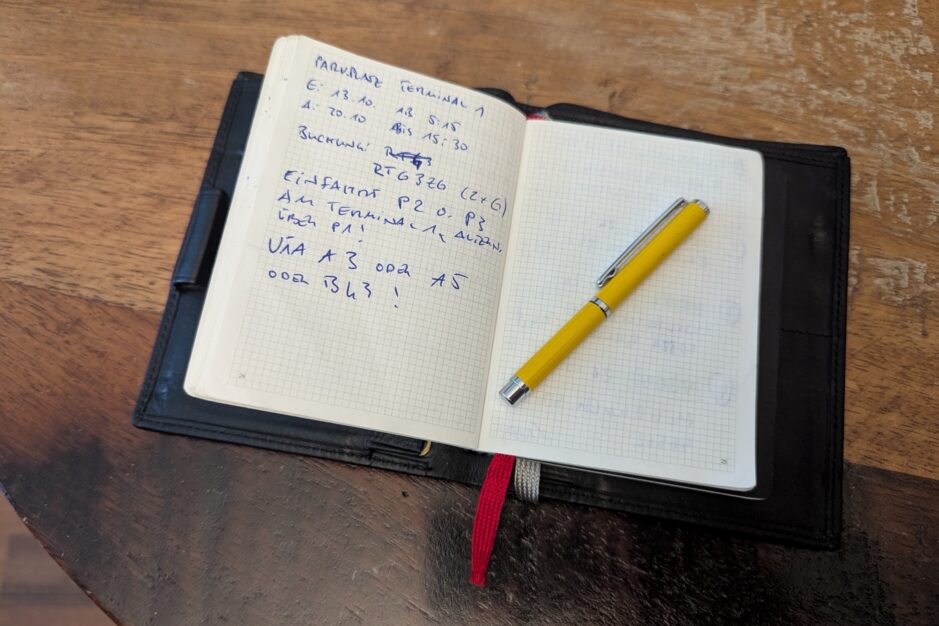 PARKPLATZ TERMINAL 1
E: 13.10. AB 5:15
A: 20.10 BIS 15:30
BUCHUNG:
RTG3ZG (2xG)
EINFAHRT P2 O. P3
AM TERMINAL 1,
ÜBER P1!
VIA A3 ODER A5
ODER B43!